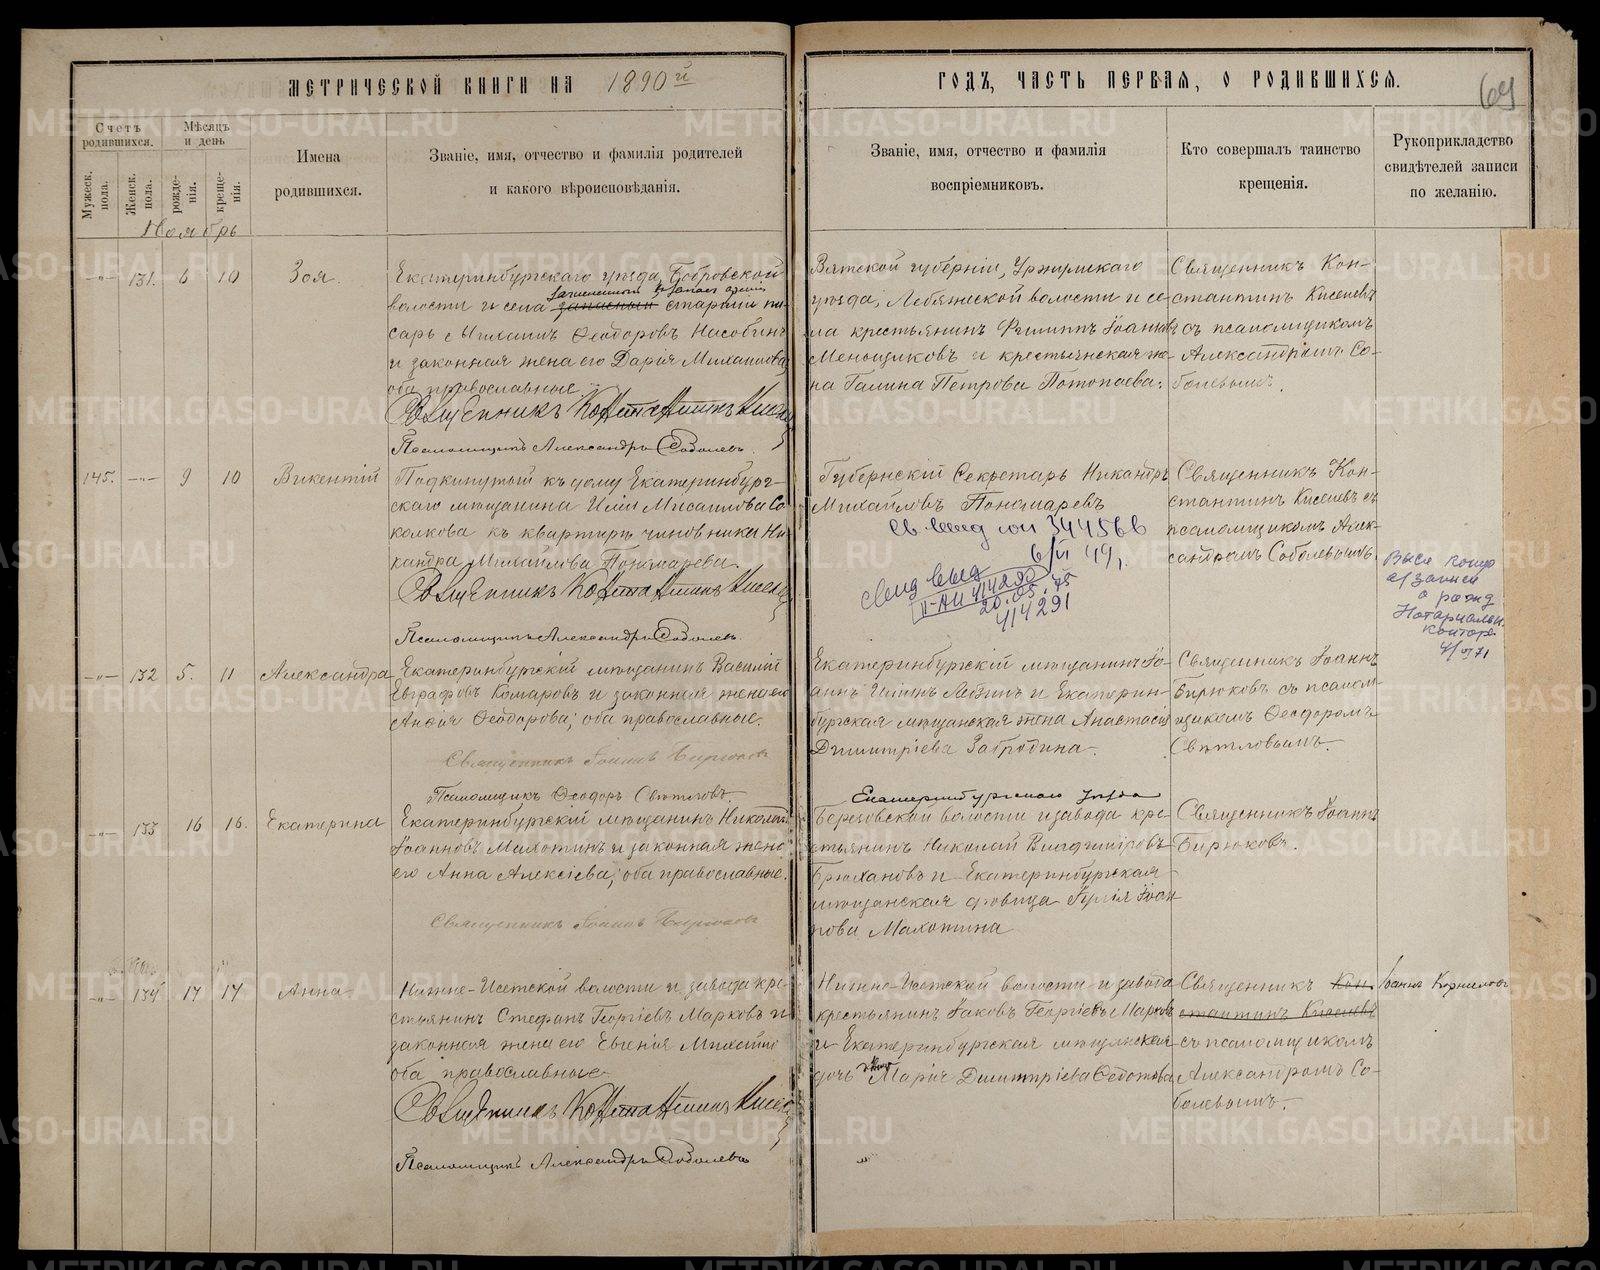 МЕТРИЧЕСКОЙ КНИГИ НА 1890й
ГОДЪ, ЧАСТЬ ПЕРВАЯ, О РОДИВШИХСЯ.
69
Счетъ родившихся.
Мужеск. пола.
Женск. пола.
Мѣсяцъ и день
рожденія.
крещенія.
Имена
родившихся.
Званіе, имя, отчество и фамилія родителей
и какого вѣроисповѣданія.
Званіе, имя, отчество и фамилія
воспріемниковъ.
Кто совершалъ таинство
крещенія.
Рукоприкладство
свидѣтелей записи
по желанію.
Ноябрь
-„- 131. 6 10 Зоя.
Екатеринбургскаго уѣзда, Бобровской
волости и села запасный старшій пи-
сарь Михаилъ Ѳеодоровъ Насобинъ
и законная жена его Дарія Михаилова,
оба православные.
Священникъ Константинъ Киселевъ
Псаломщикъ Александръ Соболевъ.
Вятской губерніи, Уржумскаго
уѣзда, Лебяжской волости и се-
ла крестьянинъ Филиппъ Іоанновъ
Меньщиковъ и крестьянская же-
на Галина Петрова Потопаева.
Священникъ Кон-
стантинъ Киселевъ
съ псаломщикомъ
Александромъ Со-
болевымъ.
145. -„- 9 10 Викентій
Подкинутый къ дому Екатеринбург-
скаго мѣщанина Иліи Михаилова Со
колкова къ квартирѣ чиновника Ни-
кандра Михаилова Пономарева.
Священникъ Константинъ Киселевъ
Псаломщикъ Александръ Соболевъ.
Губернскій Секретарь Никандръ
Михайловъ Пономаревъ
344566
6/VI 49,
свид выд
II-АИ 414290
20.05.75
414291
Священникъ Кон-
стантинъ Киселевъ съ
псаломщикомъ Алек-
сандромъ Соболевымъ.
записи
о рожд
Нотариальн.
конторе
-„- 132 5. 11 Александра
Екатеринбургскій мѣщанинъ Василій
Евграфовъ Комаровъ и законная жена его
Анфія Ѳеодорова; оба православные.
Священникъ Іоаннъ Бирюковъ
Псаломщикъ Ѳеодоръ Свѣтловъ.
Екатеринбургскій мѣщанинъ Іо-
аннъ и Екатерин-
бургская мѣщанская жена Анастасія
Димитріева Забродина.
Священникъ Іоаннъ
Бирюковъ съ псалом
щикомъ Ѳеодоромъ
Свѣтловымъ.
-„- 133 16 16. Екатерина
Екатеринбургскій мѣщанинъ Николай
Іоанновъ Махотинъ и законная жена
его Анна Алексіева; оба православные.
Священникъ Іоаннъ Бирюковъ
Екатеринбургскаго Уѣзда
Березовской волости и завода кре-
стьянинъ Николай Владиміровъ
Брюхановъ и Екатеринбургская
мѣщанская дѣвица Іулія Іоан
нова Махотина
Священникъ Іоаннъ
Бирюковъ.
-„- 134 17 17 Анна
Нижне-Исетской волости и завода кре-
стьянинъ Стефанъ Георгіевъ Марковъ и
законная жена его Евгенія
оба православные
Священникъ Константинъ Киселевъ
Псаломщикъ Александръ Соболевъ
Нижне-Исетской волости и завода
крестьянинъ Іаковъ Георгіевъ Марковъ
и Екатеринбургская мѣщанская
дочь Марія Димитріева Ѳедотова
Священникъ Кон-
стантинъ Киселевъ
съ псаломщикомъ
Александромъ Со-
болевымъ.
Іоаннъ Корниловъ
METRIKI.GASO-URAL.RU